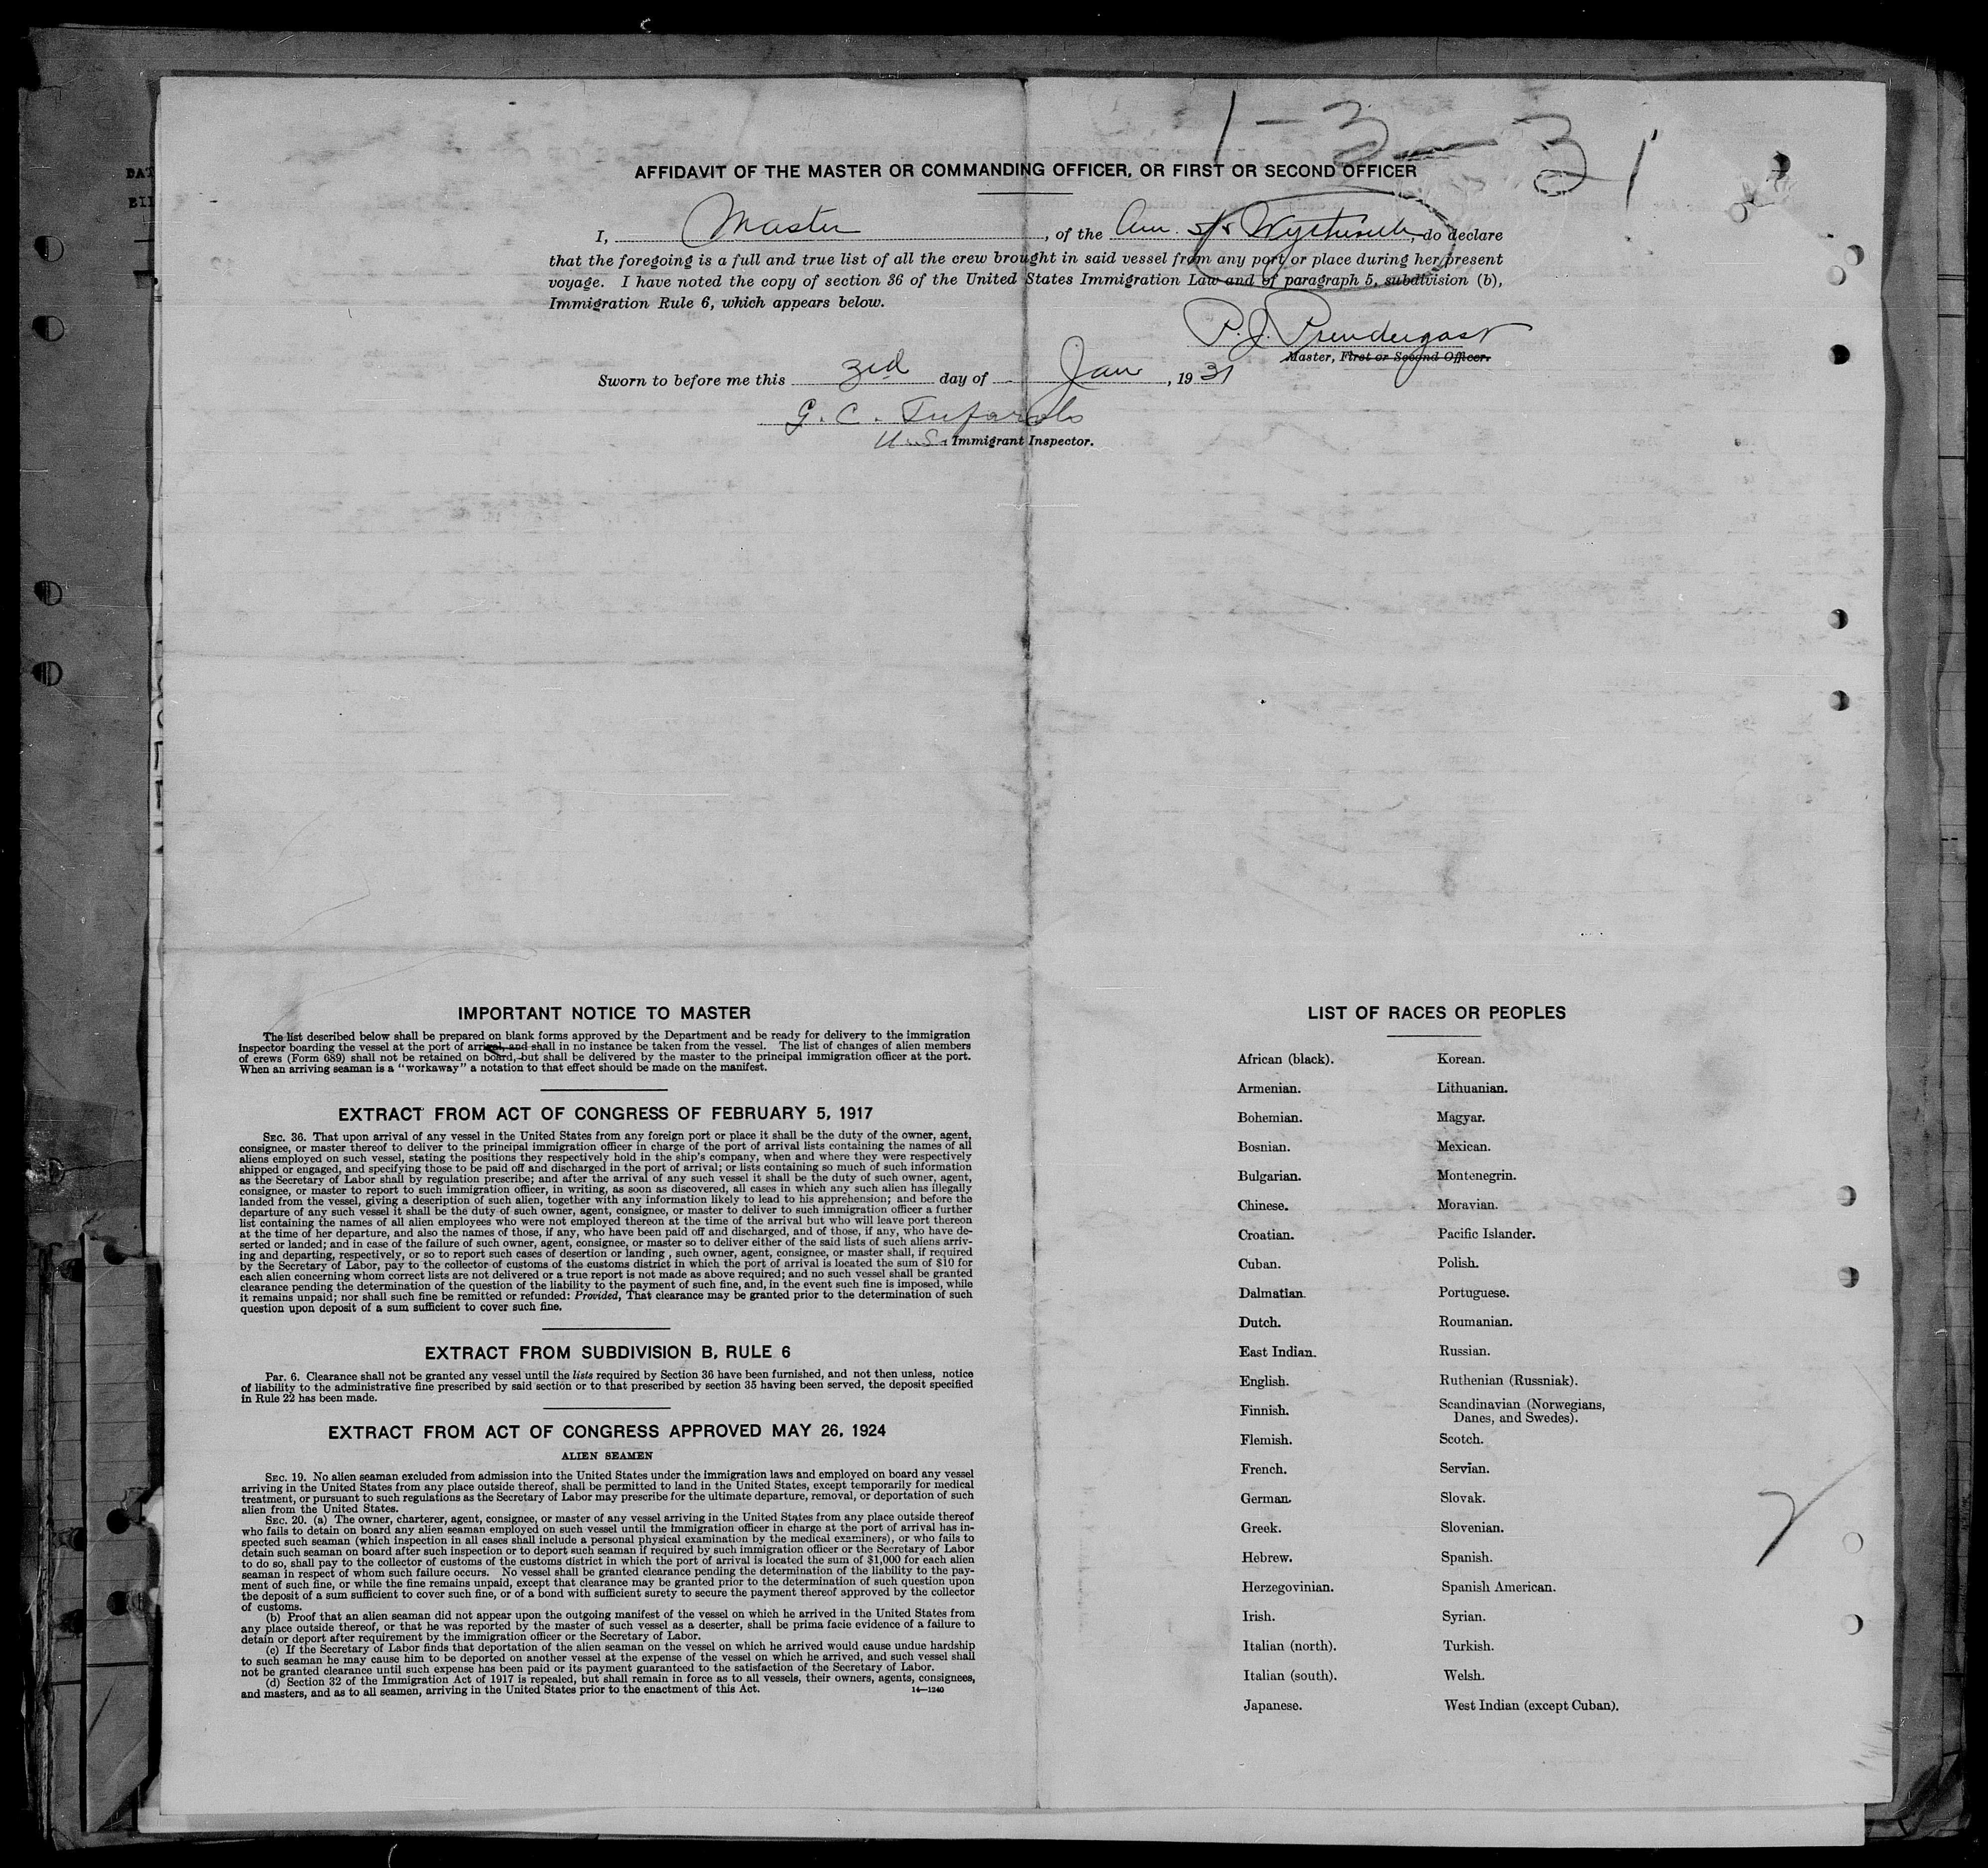 1-3-31
AFFIDAVIT OF THE MASTER OR COMMANDING OFFICER, OR FIRST OR SECOND OFFICER
I, Master, of the Am. s/s, do declare
that the foregoing is a full and true list of all the crew brought in said vessel from any port or place during her present
voyage. I have noted the copy of section 36 of the United States Immigration Law and of paragraph 5, subdivision (b),
Immigration Rule 6, which appears below.
P. J. Prendergast
Master, First or Second Officer.
Sworn to before me this 3rd day of Jan, 1931
G. C.
U.S. Immigrant Inspector.
IMPORTANT NOTICE TO MASTER
The list described below shall be prepared on blank forms approved by the Department and be ready for delivery to the immigration
inspector boarding the vessel at the port of arrival, and shall in no instance be taken from the vessel. The list of changes of alien members
of crews (Form 689) shall not be retained on board, but shall be delivered by the master to the principal immigration officer at the port.
When an arriving seaman is a "workaway" a notation to that effect should be made on the manifest.
EXTRACT FROM ACT OF CONGRESS OF FEBRUARY 5, 1917
SEC. 36. That upon arrival of any vessel in the United States from any foreign port or place it shall be the duty of the owner, agent,
consignee, or master thereof to deliver to the principal immigration officer in charge of the port of arrival lists containing the names of all
aliens employed on such vessel, stating the positions they respectively hold in the ship's company, when and where they were respectively
shipped or engaged, and specifying those to be paid off and discharged in the port of arrival; or lists containing so much of such information
as the Secretary of Labor shall by regulation prescribe; and after the arrival of any such vessel it shall be the duty of such owner, agent,
consignee, or master to report to such immigration officer, in writing, as soon as discovered, all cases in which any such alien has illegally
landed from the vessel, giving a description of such alien, together with any information likely to lead to his apprehension; and before the
departure of any such vessel it shall be the duty of such owner, agent, consignee, or master to deliver to such immigration officer a further
list containing the names of all alien employees who were not employed thereon at the time of the arrival but who will leave port thereon
at the time of her departure, and also the names of those, if any, who have been paid off and discharged, and of those, if any, who have de-
serted or landed; and in case of the failure of such owner, agent, consignee, or master so to deliver either of the said lists of such aliens arriv-
ing and departing, respectively, or so to report such cases of desertion or landing , such owner, agent, consignee, or master shall, if required
by the Secretary of Labor, pay to the collector of customs of the customs district in which the port of arrival is located the sum of $10 for
each alien concerning whom correct lists are not delivered or a true report is not made as above required; and no such vessel shall be granted
clearance pending the determination of the question of the liability to the payment of such fine, and, in the event such fine is imposed, while
it remains unpaid; nor shall such fine be remitted or refunded: Provided, That clearance may be granted prior to the determination of such
question upon deposit of a sum sufficient to cover such fine.
EXTRACT FROM SUBDIVISION B, RULE 6
Par. 6. Clearance shall not be granted any vessel until the lists required by Section 36 have been furnished, and not then unless, notice
of liability to the administrative fine prescribed by said section or to that prescribed by section 35 having been served, the deposit specified
in Rule 22 has been made.
EXTRACT FROM ACT OF CONGRESS APPROVED MAY 26, 1924
ALIEN SEAMEN
SEC. 19. No alien seaman excluded from admission into the United States under the immigration laws and employed on board any vessel
arriving in the United States from any place outside thereof, shall be permitted to land in the United States, except temporarily for medical
treatment, or pursuant to such regulations as the Secretary of Labor may prescribe for the ultimate departure, removal, or deportation of such
alien from the United States.
SEC. 20. (a) The owner, charterer, agent, consignee, or master of any vessel arriving in the United States from any place outside thereof
who fails to detain on board any alien seaman employed on such vessel until the immigration officer in charge at the port of arrival has in-
spected such seaman (which inspection in all cases shall include a personal physical examination by the medical examiners), or who fails to
detain such seaman on board after such inspection or to deport such seaman if required by such immigration officer or the Secretary of Labor
to do so, shall pay to the collector of customs of the customs district in which the port of arrival is located the sum of $1,000 for each alien
seaman in respect of whom such failure occurs. No vessel shall be granted clearance pending the determination of the liability to the pay-
ment of such fine, or while the fine remains unpaid, except that clearance may be granted prior to the determination of such question upon
the deposit of a sum sufficient to cover such fine, or of a bond with sufficient surety to secure the payment thereof approved by the collector
of customs.
(b) Proof that an alien seaman did not appear upon the outgoing manifest of the vessel on which he arrived in the United States from
any place outside thereof, or that he was reported by the master of such vessel as a deserter, shall be prima facie evidence of a failure to
detain or deport after requirement by the immigration officer or the Secretary of Labor.
(c) If the Secretary of Labor finds that deportation of the alien seaman on the vessel on which he arrived would cause undue hardship
to such seaman he may cause him to be deported on another vessel at the expense of the vessel on which he arrived, and such vessel shall
not be granted clearance until such expense has been paid or its payment guaranteed to the satisfaction of the Secretary of Labor.
(d) Section 32 of the Immigration Act of 1917 is repealed, but shall remain in force as to all vessels, their owners, agents, consignees,
and masters, and as to all seamen, arriving in the United States prior to the enactment of this Act.
14—1240
LIST OF RACES OR PEOPLES
African (black). Korean.
Armenian. Lithuanian.
Bohemian. Magyar.
Bosnian. Mexican.
Bulgarian. Montenegrin.
Chinese. Moravian.
Croatian. Pacific Islander.
Cuban. Polish.
Dalmatian. Portuguese.
Dutch. Roumanian.
East Indian. Russian.
English. Ruthenian (Russniak).
Finnish. Scandinavian (Norwegians,
Danes, and Swedes).
Flemish. Scotch.
French. Servian.
German. Slovak.
Greek. Slovenian.
Hebrew. Spanish.
Herzegovinian. Spanish American.
Irish. Syrian.
Italian (north). Turkish.
Italian (south). Welsh.
Japanese. West Indian (except Cuban).